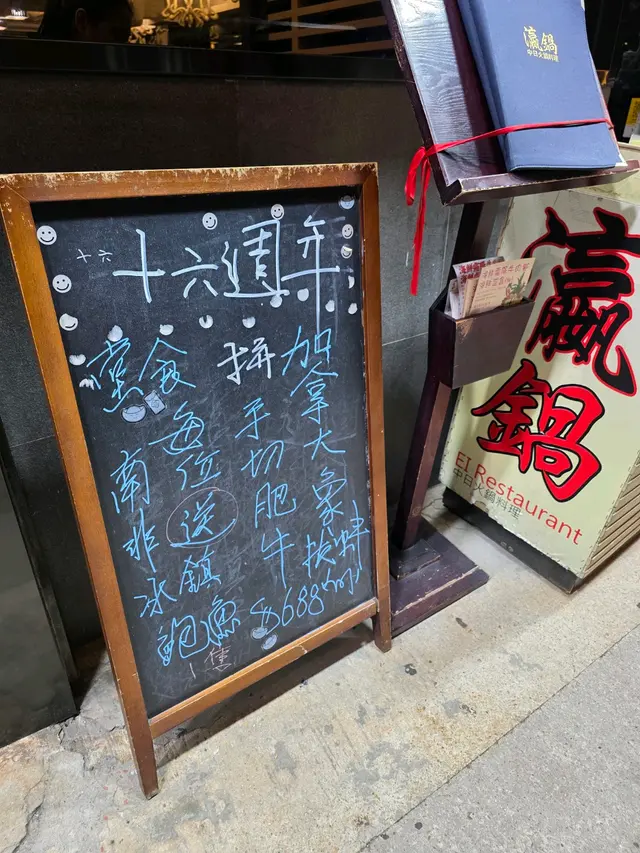 十六週年
十六
加拿大象拔蚌
拼手切肥牛
$688
堂食
每位送
南非
冰鎮
鮑魚
1隻
瀛鍋
中日火鍋料理
瀛鍋
EI Restaurant
中日火鍋料理